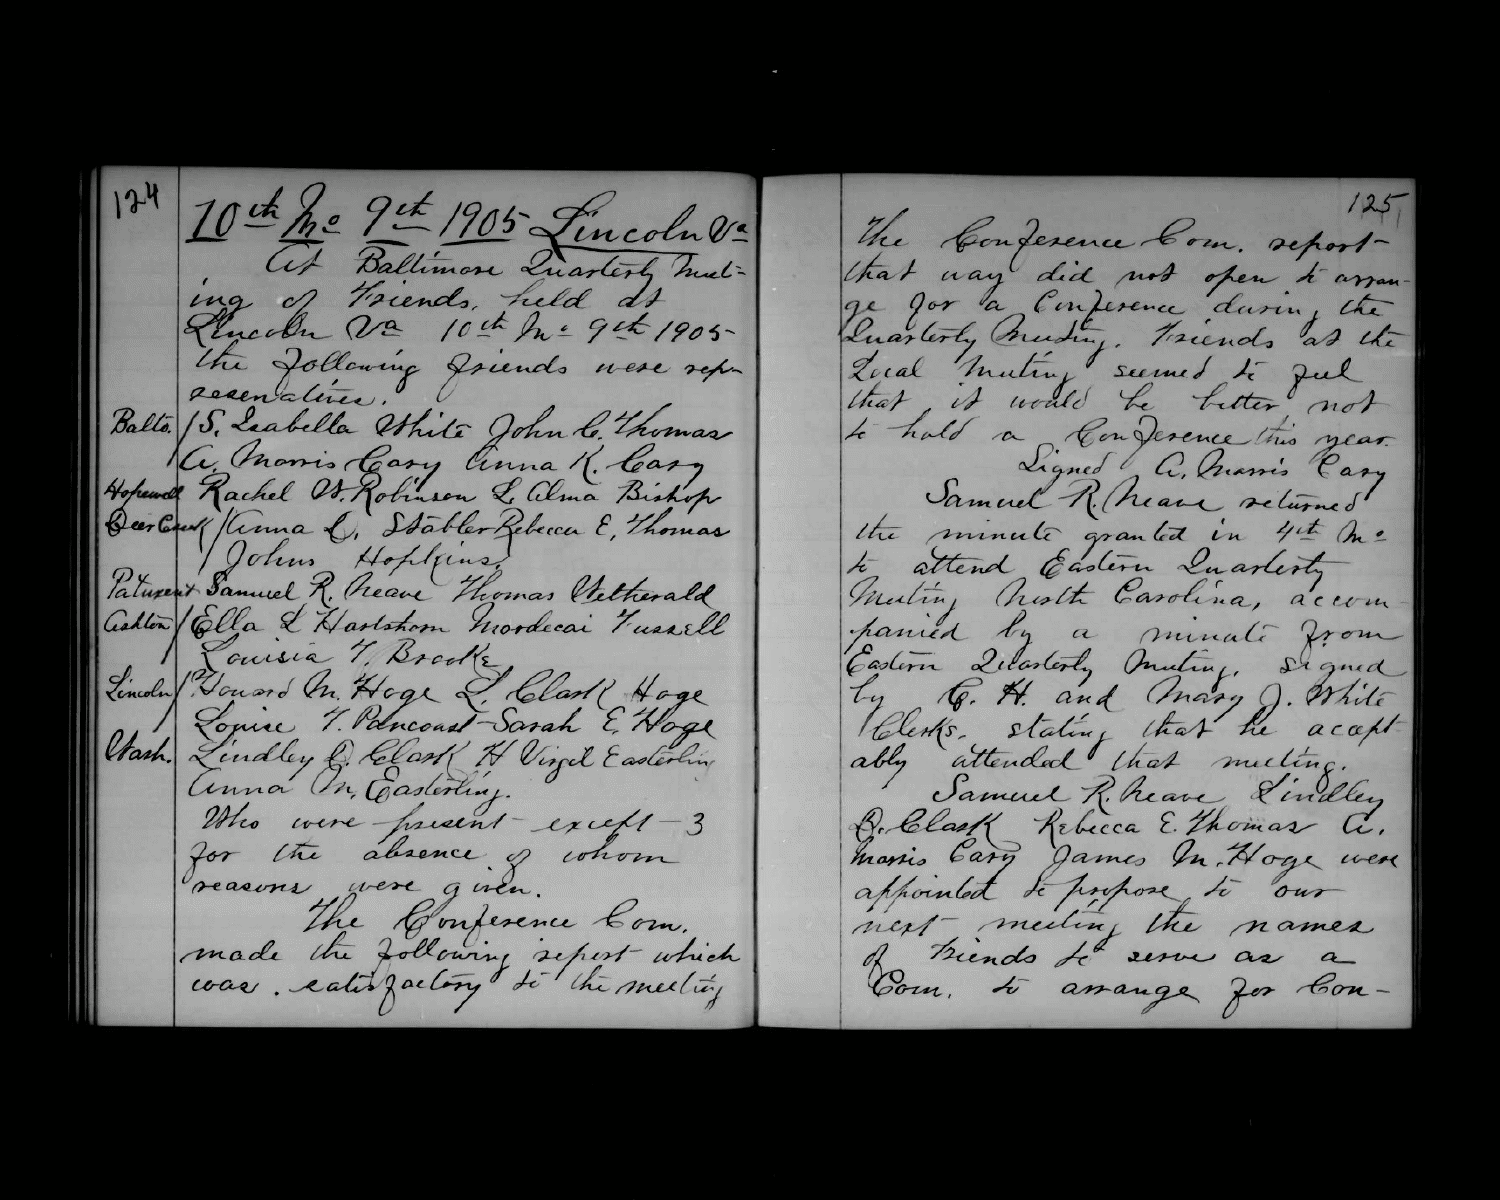 124
10th Mo 9th 1905 Lincoln Va
At Baltimore Quarterly Meet-
ing of Friends, held at
Lincoln Va 10th Mo 9th 1905
the following friends were rep-
resenatives.
Balto. S. Isabella White John C. Thomas
A. Morris Cary Anna K. Cary
Hopewell Rachel W. Robinson L. Alma Bishop
Deer Creek Anna D. Stabler Rebecca E. Thomas
Johns Hopkins.
Patuxent Samuel R. Neave Thomas Wetherald
Ashton Ella L Hartshorn Mordecai Fussell
Louisia T. Brooke
Lincoln Howard M. Hoge L. Clark Hoge
Louise T. Pancoast Sarah E. Hoge
Wash. Lindley D. Clark H Virgil Easterling
Anna M. Easterling.
Who were present except 3
for the absence of whom
reasons were given.
The Conference Com.
made the following report which
was satisfactory to the meeting
125
The Conference Com. report
that way did not open to arran-
ge for a Conference during the
Quarterly Meeting. Friends at the
Local Meeting seemed to feel
that it would be better not
to hold a Conference this year.
Signed A. Morris Cary
Samuel R. Neave returned
the minute granted in 4th Mo
to attend Eastern Quarterly
Meeting North Carolina, accom-
panied by a minute from
Eastern Quarterly Meeting, signed
by C. H. and Mary J. White
Clerks, stating that he accept-
ably attended that meeting.
Samuel R. Neave Lindley
D. Clark Rebecca E. Thomas A.
Morris Cary James M. Hoge were
appointed to propose to our
next meeting the names
of Friends to serve as a
Com. to arrange for Con-